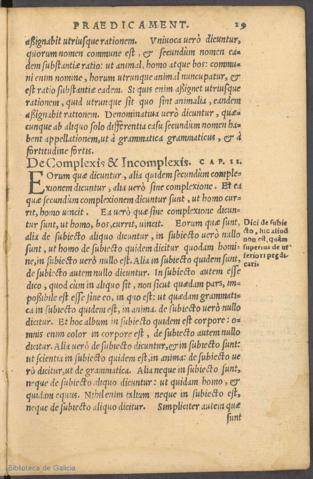 PRÆDICAMENT. 29
aßignabit utriusque rationem. Vniuoca uerò dicuntur,
quorum nomen commune est, & secundùm nomen ea-
dem substantiæ ratio: ut animal, homo atque bos: commu-
ni enim nomine, horum utrunque animal nuncupatur, &
est ratio substantiæ eadem. Si quis enim aßignet utriusque
rationem, quid utrunque sit quo sint animalia, eandem
aßignabit rationem. Denominatiua uerò dicuntur, quæ-
cunque ab aliquo solo differentia casu secundùm nomen ha-
bent appellationem, ut à grammatica grammaticus, & à
fortitudine fortis.
De Complexis & Incomplexis. CAP. II.
EOrum quæ dicuntur, alia quidem secundùm comple-
xionem dicuntur, alia uerò sine complexione. Et ea
quæ secundùm complexionem dicuntur sunt, ut homo cur-
rit, homo uincit. Ea uerò quæ sine complexione dicun-
tur sunt, ut homo, bos, currit, uincit. Eorum quæ sunt,
alia de subiecto quidem dicuntur, in subiecto uerò nullo
sunt, ut homo de subiecto quidem dicitur quodam homi-
ne, in subiecto uerò nullo est. Alia in subiecto quidem sunt,
de subiecto autem nullo dicuntur. In subiecto autem esse
dico, quod cùm in aliquo sit, non sicut quædam pars, im-
poßibile est esse sine eo, in quo est: ut quædam grammati-
ca in subiecto quidem est, in anima. de subiecto uerò nullo
dicitur. Et hoc album in subiecto quidem est corpore: o-
mnis enim color in corpore est, de subiecto autem nullo
dicitur. Alia uerò de subiecto dicuntur, & in subiecto sunt:
ut scientia in subiecto quidem est, in anima: de subiecto ue
rò dicitur, ut de grammatica. Alia neque in subiecto sunt,
neque de subiecto aliquo dicuntur: ut quidam homo, &
quidam equus. Nihil enim talium neque in subiecto est,
neque de subiecto aliquo dicitur. Simpliciter autem quæ
sunt
Dici de subie
cto, hic aliud
non est, quàm
superius de in
feriori prædi
cari.
Biblioteca de Galicia